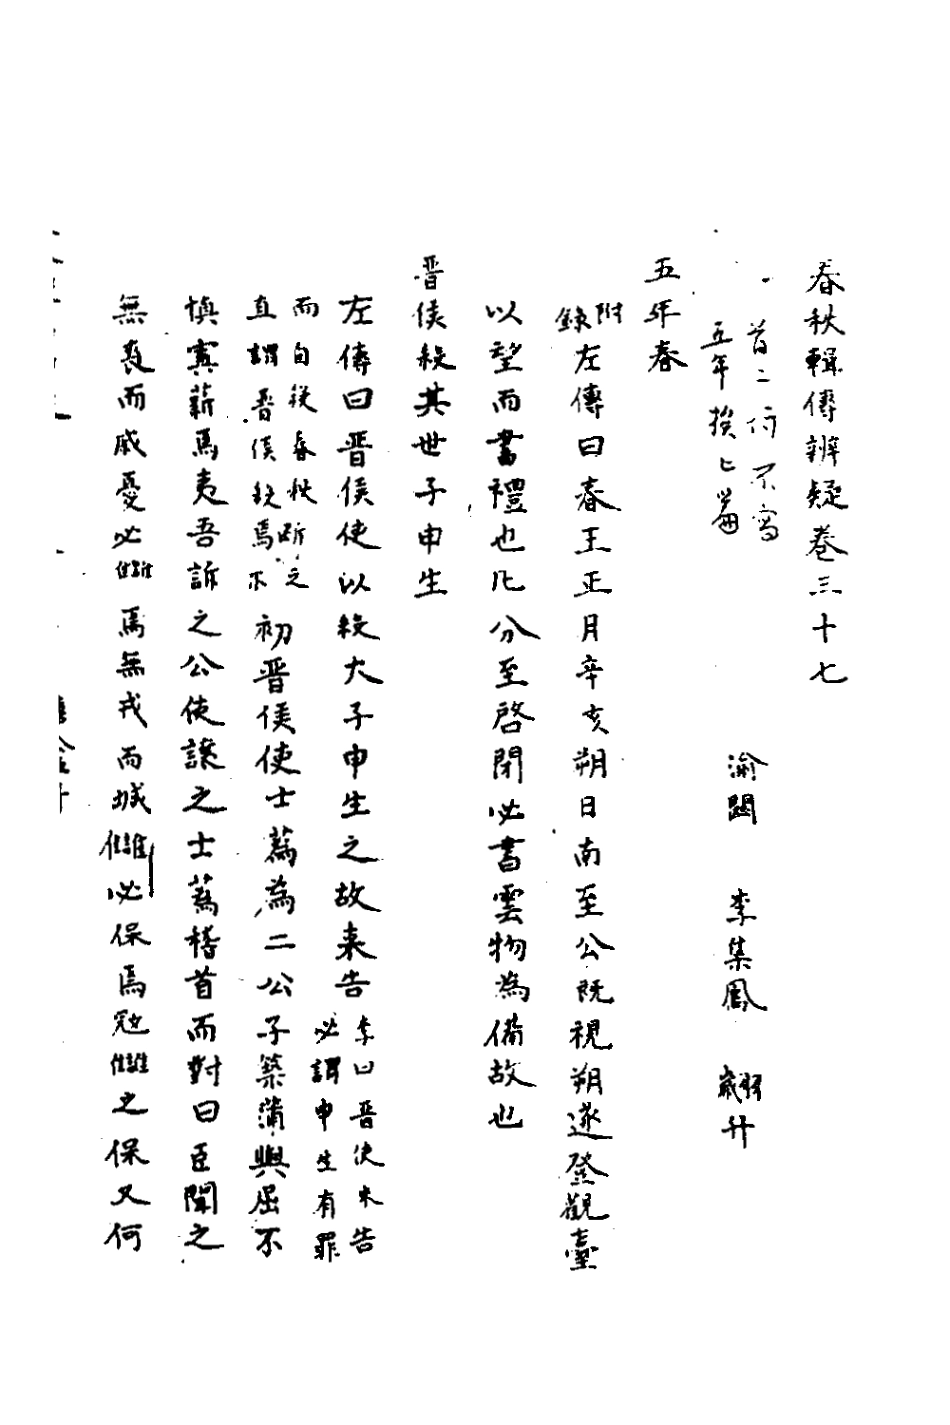 春秋輯傳辨疑卷三十七
首二行不寫
五年挨七篇
渝關 李集鳳 翽升
五年春
附錄左傳曰春王正月辛亥朔日南至公既視朔遂登觀臺
以望而書禮也凡分至啓閉必書雲物為備故也
晋侯殺其世子申生
左傳曰晋侯使以殺大子申生之故来告李曰晋使来告必謂申生有罪
而自殺春秋斷之直謂晋侯殺焉不初晋侯使士蔿為二公子築蒲與屈不
慎寘薪焉夷吾訴之公使讓之士蔿稽首而對曰臣聞之
無喪而戚憂必讎焉無戎而城讎必保焉寇讎之保又何